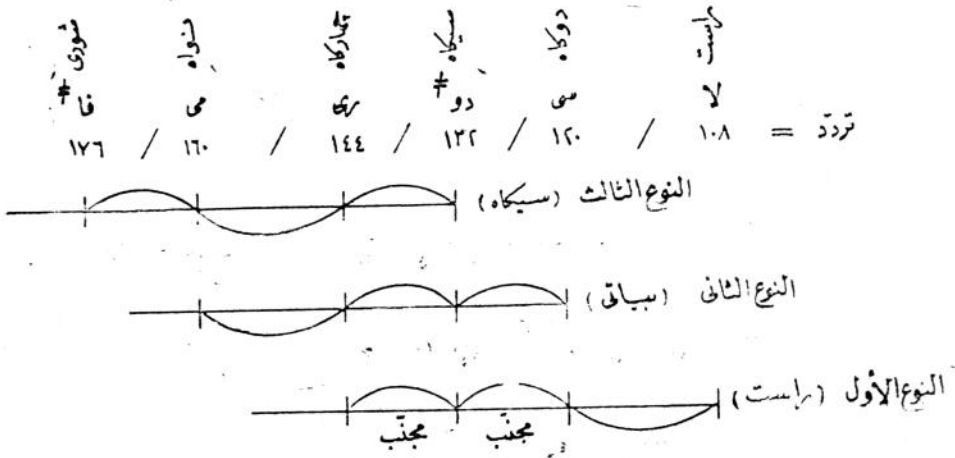 راست دوكاه سيكاه جهاركاه نواه شورى
لا سى دو# رى مى فا#
تردّد = ١٠٨ / ١٢٠ / ١٣٢ / ١٤٤ / ١٦٠ / ١٧٦
النوع الثالث (سيكاه)
النوع الثانى (بياتى)
النوع الأول (راست)
مجنّب مجنّب